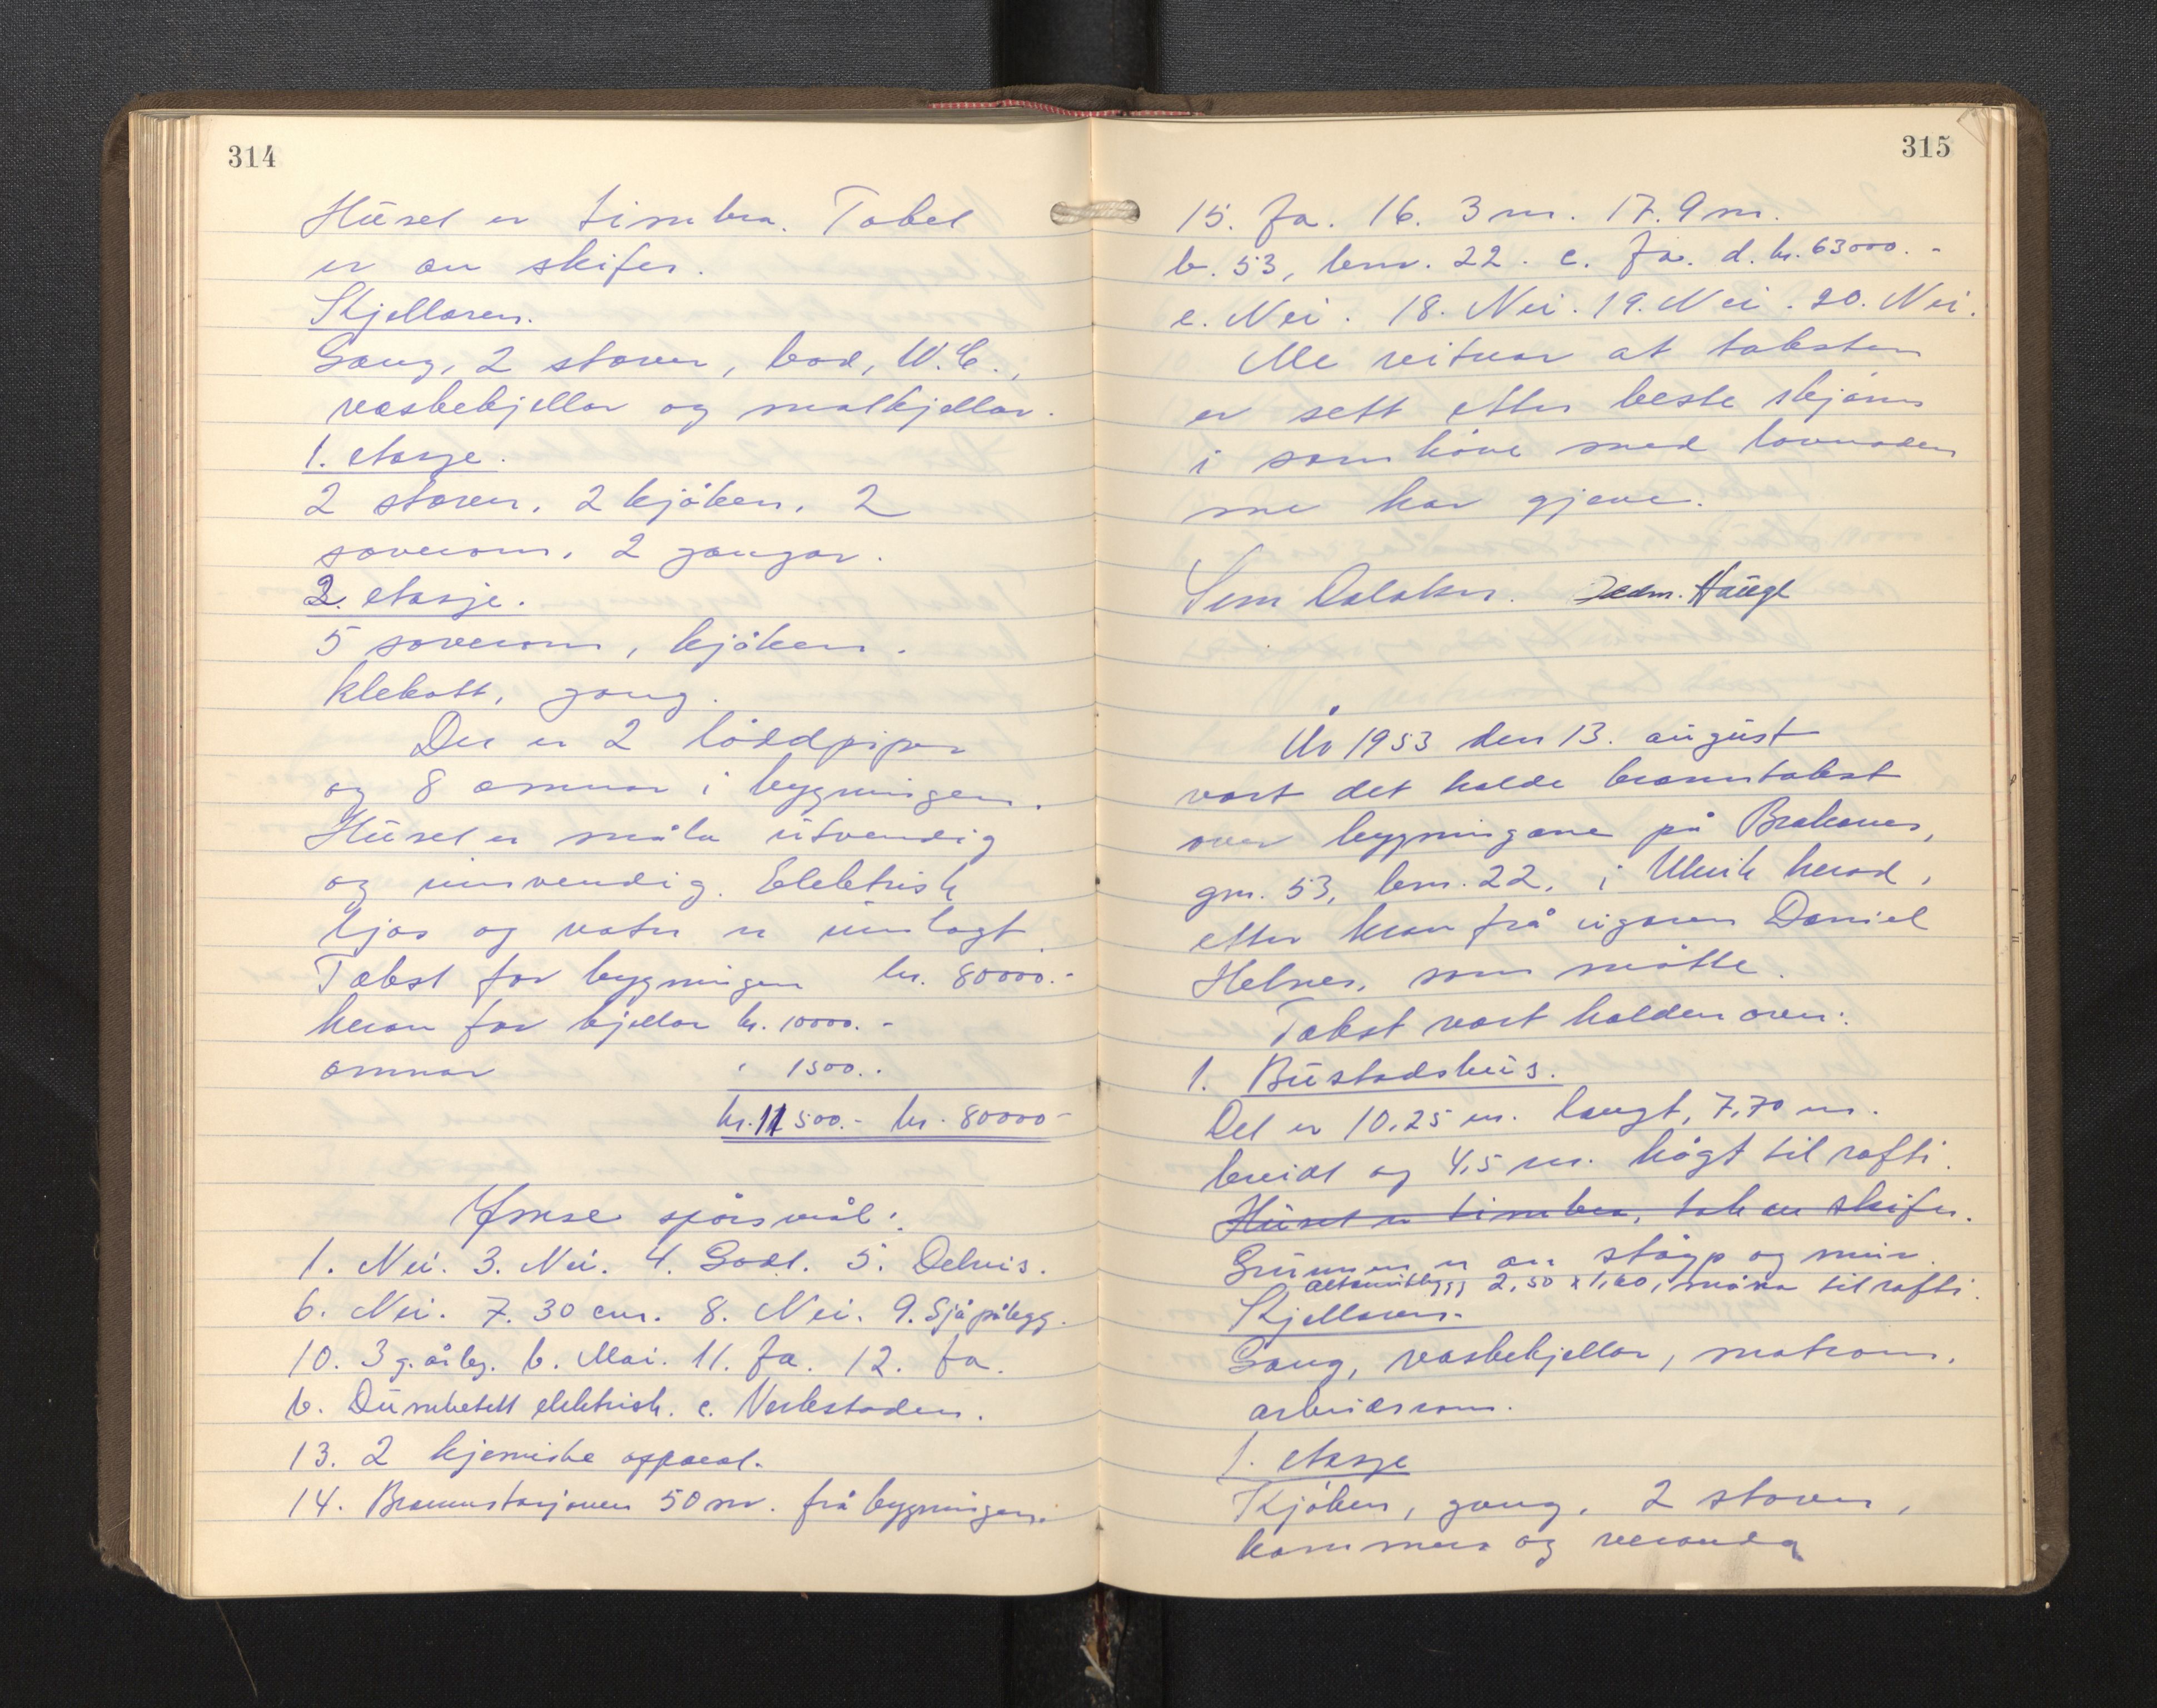 314
Húset er timbra. Taket
er au skifer.
Kjellaren.
Gang, 2 stover, bod, W.C.,
vaskekjellar og matkjellar.
1. etasje.
2 stover, 2 kjöken, 2
soverom, 2 gangar.
2. etasje.
5 soverom, kjöken.
klekott, gang.
Der er 2 löddpiper
og 8 omnar i bygningen.
Húset er måla útvendig
og innvendig. Elektrisk
ljos og vatn er innlagt.
Takst for bygningen kr. 80000.-
herav for kjellar kr. 10000.-
omnar " 1500.-
kr. 11500.- kr. 80000-
Ymse spörsmål:
1. Nei. 3. Nei. 4. Godt. 5. Delvis.
6. Nei. 7. 30 cm. 8. Nei. 9. Sjå pålegg.
10. 3 g. årleg. b. Mai. 11. Ja. 12. Ja.
b. Dúnketell elektrisk. c. Verkstaden.
13. 2 kjemiske apparat.
14. Brannstasjonen 50 m. frå bygningen.
315
15. Ja. 16. 3 m. 17. 9 m.
b. 53, bnr. 22. c. Ja. d. kr. 63000.-
e. Nei. 18. Nei. 19. Nei. 20. Nei.
Me vitnar at taksten
er sett etter beste skjönn
i samhöve med lovnaden
me har gjeve.
Sem Dalaker. Haúge
År 1953 den 13. aúgúst
vart det halde branntakst
over bygningane på Brakanes,
gnr. 53, bnr. 22, i Ulvik herad,
etter krav frå eigaren Daniel
Helnes, som mötte.
Takst vart halden over:
1. Bústadshús.
Det er 10,25 m. langt, 7,70 m.
breidt og 4,5 m. högt til rafti.
Húset er timbra, tak au skifer.
Grúnnen er au stöyp og múr.
2,50 x 1,60, til rafti.
Kjellaren.
Gang, vaskekjellar, matrom,
arbeidsrom.
1. etasje
Kjöken, gang, 2 stover,
kammers og veranda